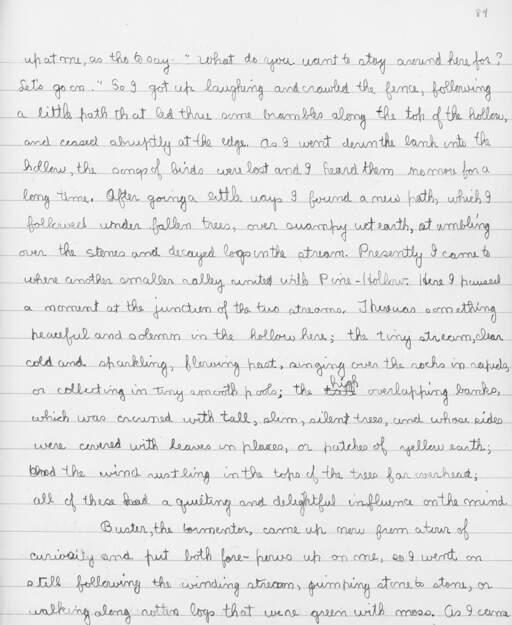 84
up at me, as tho to say - "What do you want to stay around here for?
Let's go on." So I got up laughing and crawled the fence, following
a little path that led thru some brambles along the top of the hollow,
and ceased abruptly at the edge. As I went down the bank into the
hollow, the songs of birds were lost and I heard them no more for a
long time. After going a little ways I found a new path, which I
followed under fallen trees, over swampy wet earth, stumbling
over the stones and decayed logs in the stream. Presently I came to
where another smaller valley united with Pine-Hollow. Here I paused
a moment at the junction of the two streams. There was something
peaceful and solemn in the hollow here; the tiny stream, clear
cold and sparkling, flowing past, singing over the rocks in rapids,
or collecting in tiny smooth pools; the high overlapping banks,
which was crowned with tall, slim, silent trees, and whose sides
were covered with leaves in places, or patches of yellow earth;
the wind rustling in the tops of the trees far overhead;
all of these had a quieting and delightful influence on the mind
Buster, the tormentor, came up now from a tour of
curiosity and put both fore-paws up on me, so I went on
still following the winding stream, jumping stone to stone, or
walking along rotten logs that were green with moss. As I came